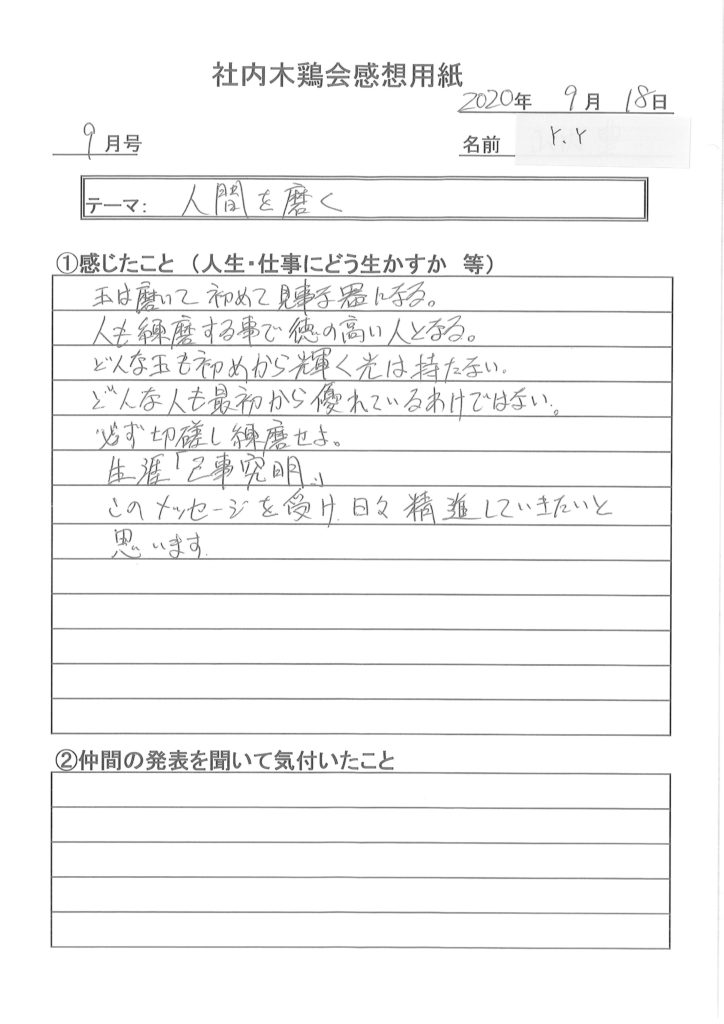 社内木鶏会感想用紙
2020年 9月 18日
9月号
名前 Y.Y
テーマ: 人間を磨く
①感じたこと (人生・仕事にどう生かすか 等)
玉は磨いて初めて見事な器になる。
人も練磨する事で徳の高い人となる。
どんな玉も初めから輝く光は持たない。
どんな人も最初から優れているわけではない。
必ず切磋し練磨せよ。
生涯「己事究明」
このメッセージを受け、日々精進していきたいと
思います。
②仲間の発表を聞いて気付いたこと